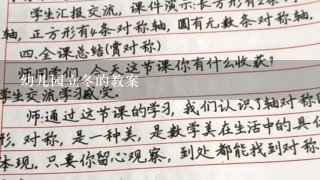 学生汇报交流，课件演示：长方形有2条
轴，正方形有4条对称轴，圆有无数条对称轴.
四.全课总结(赏对称)
今天这节课你有什么收获？
幼儿园立冬的教案
学生交流学习感受.
师：通过这节课的学习，我们认识了轴对称
形.对称，是一种美，是数学美在生活中的具
体现.只要你留心观察，到处都能找到对称